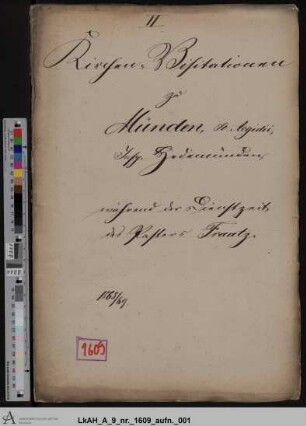 II
Kirchen-Visitationen
zu
Münden, St. Aegidii,
Insp. Hedemünden,
während der Dienstzeit
des Pastors Fraatz.
1868/69
1609
LkAH_A_9_nr._1609_aufn._001